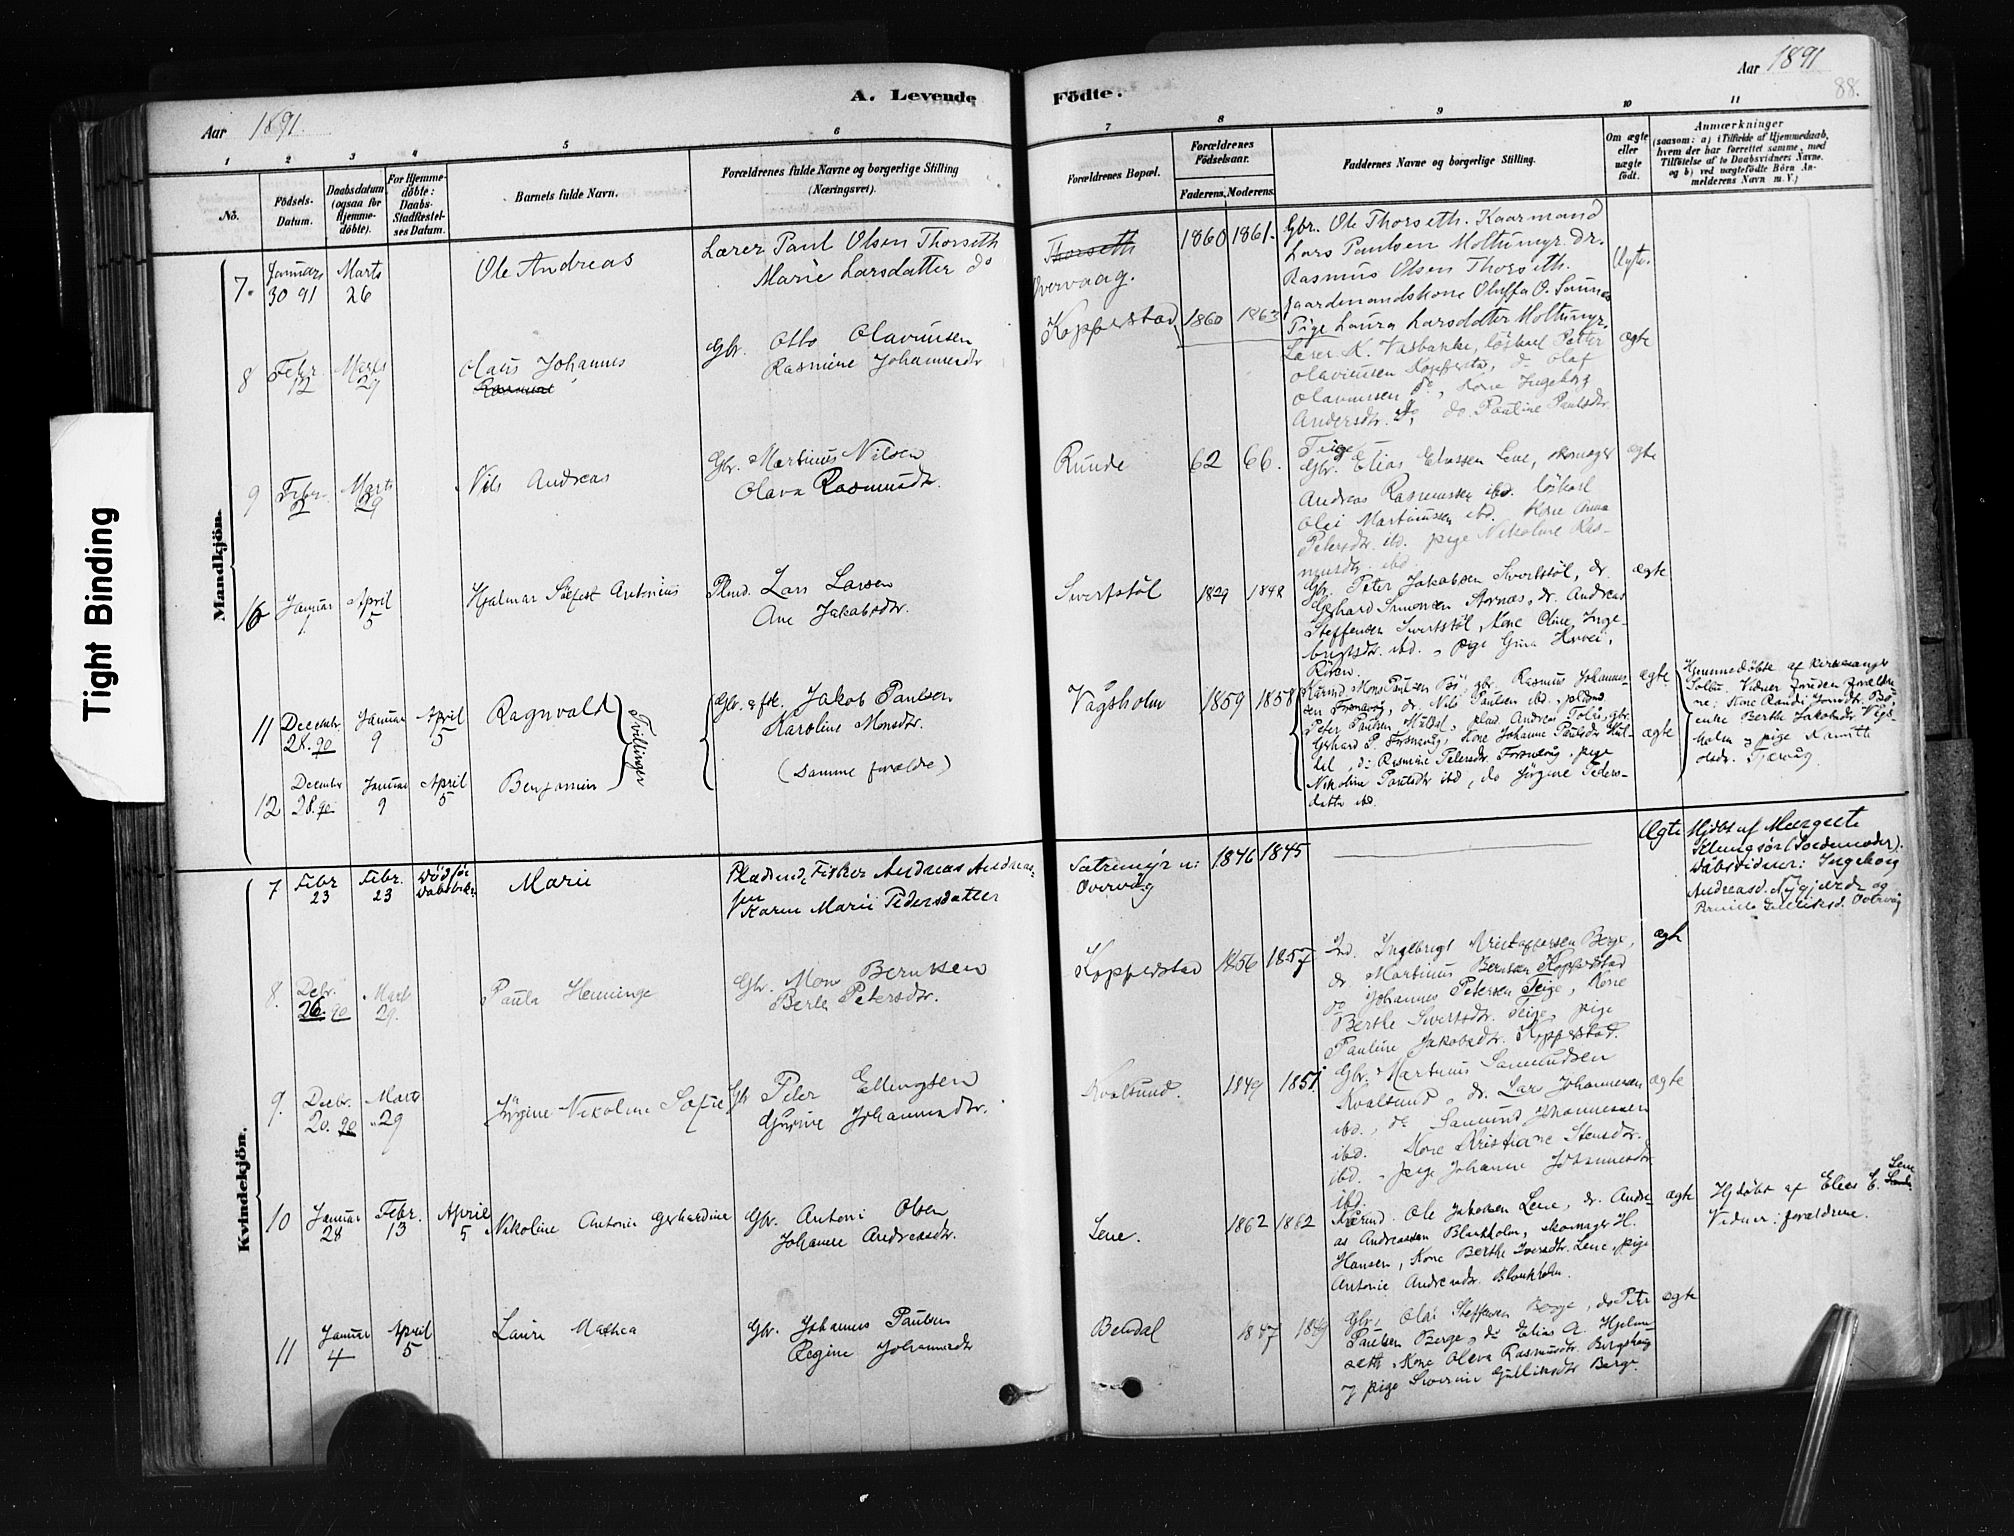 Tight Binding
A. Levende
Födte.
Aar 1891.
Aar 1891
88.
1 2 3 4 5 6
7 8 9 10 11
No.
Födsels-Datum.
Daabsdatum (ogsaa for Hjemme-döbte).
For Hjemme-döbte: Daabs-Stadfæstel-ses Datum.
Barnets fulde Navn.
Forældrenes fulde Navne og borgerlige Stilling (Næringsvei).
Forældrenes Bopæl.
Forældrenes Födselsaar.
Faderens. Moderens.
Faddernes Navne og borgerlige Stilling.
Om ægte eller uægte födt.
Anmærkninger
(saasom: a) i Tilfælde af Hjemmedaab, hvem der har forrettet samme, med Tilföielse af to Daabsvidners Navne, og b) ved uægtefödte Börn Anmelderens Navn m. V.)
Mandkjön.
7. Januar 30 91 Marts 26 Ole Andreas
Lærer Paul Olsen Thorseth
Marie Larsdatter do
Thorseth
Overvaag.
1860 1861.
Gbr. Ole Thorseth. Kaarmand
Lars Paulsen Moltumyr. Dr.
Rasmus Olsen Thorseth.
Gaardmandskone Oluffa O.
Pige Laura Larsdatter Moltumyr.
Ægte.
8 Febr 12 Marts 29 Olaus Johannes
Gbr. Otto Olavusen
Rasmine Johannesdtr
Kopperstad 1860 1863
Lærer K. Vasbakke, löskarl Petter
Olavusen Kopperstad, do Olaf
Olavusen do, Kone Ingeborg
Andersdtr. do, do. Pauline Paulsdtr
Teige
ægte
9 Febr. 2 Marts 29 Nils Andreas
Gbr. Martinus Nilsen
Olava Rasmusdtr.
Runde 62 66.
Gbr. Elias Eliassen Lene, skomager
Andreas Rasmussen ibd. löskarl
Olai Martinussen ibd. Kone Anna
Petersdtr. ibd. pige Nikoline Ras-
musdtr. ibd.
ægte
10 Januar 1 April 5 Hjalmar Sifert Antonius
Plmd. Lars Larsen
Ane Jakobsdtr.
Sivertstöl 1829 1848
Gbr. Peter Jakobsen Sivertstöl, dr
Gerhard Simonsen Stornæs, dr. Andreas
Steffensen Sivertstöl, Kone Oline Inge-
brigtsdtr. ibd., pige Gina
ægte
11 Decembr. 28. 90 Januar 9 April 5 Ragnvald
Tvillinger
Gbr. & fsk. Jakob Paulsen
Karoline Monsdtr.
Vågsholm 1859 1858
Kårmd. Mons Paulsen Bö, gbr Rasmus Johannes-
sen Frönevåg, dr. Nils Paulsen ibd., plmd
Peter Paulsen Myldal, plmd. Andreas
Gerhard P. Frönevåg, Kone Johanne Paulsdtr
do Rasmine Petersdtr. Frönevåg, pige
Nikoline Paulsdtr ibd, do Jörgine Peders-
datter ibd.
ægte
ægte
Hjemmedøbte af Kirkesanger
Solbu. Vidner foruden forældre-
ne: Kone Randi Jonsdtr. Bö,
enke Berthe Jakobsdtr. Vågs-
holm og pige
12 Decembr 28. 90 Januar 9 April 5 Benjamin
(Samme forældre)
Kvindekjön.
7 Febr 23 Febr. 23 Død før Daabsbekr. Marie
Pladsmd. Fisker Andreas Andreas-
sen
Karen Marie Pedersdatter
Sætremyr u:
Overvåg
1846 1845
Ægte
Hjdbt af Margrete
Klungsör (Jordemoder).
Daabsvidner: Ingeborg
Andreasd. Nygjerde og
Pernille Gulliksd. Overvåg
8. Debr. 26. 90 Marts 29. Paula Henninge
Gbr. Mons Berntsen
Berte Petersdtr.
Kopperstad 1856 1857
Ind. Ingebrigt Kristoffersen Berge,
dr Martinus Berntsen Kopperstad
do Johannes Petersen Teige, Kone
Berthe Sivertsdtr. Teige, pige
Pauline Jakobsdtr. Kopperstad.
ægte
9. Debr. 20. 90 Marts 29 Jörgine Nikoline Sofie
Gbr Peter Ellingsen
Gurine Johannesdtr.
Kvalsund. 1849 1851
Gbr. Martinus Samundsen
Kvalsund, dr. Lars Johannesen
ibd., do Samund Johannesen
ibd. Kone Kristiane Stensdtr.
ibd. pige Johanne Johannesdtr
ibd.
ægte
10 Januar 28 Febr. 13 April 5 Nikoline Antonie Gerhardine
Gbr. Antoni Olsen
Johanne Andreasdtr.
Lene. 1862 1862
Kårmd. Ole Jakobsen Lene, dr. Andre-
as Andreassen Blankholm, skomager H.
Hansen, Kone Berthe Iversdtr. Lene, pige
Antonie Andreasdtr. Blankholm.
ægte
Hjdøbt af Elias E. Lene
Vidner: forældrene.
11 Januar 4 April 5 Laura Mathea
Gbr. Johannes Paulsen
Regine Johannesdtr
Bendal 1847 1849
Gbr. Olai Steffensen Berge, do Peter
Paulsen Berge, do Elias A. Hjelm-
seth, Kone Oleva Rasmusdtr. Bergshaug
og pige Severine Gulliksdtr Berge.
ægte